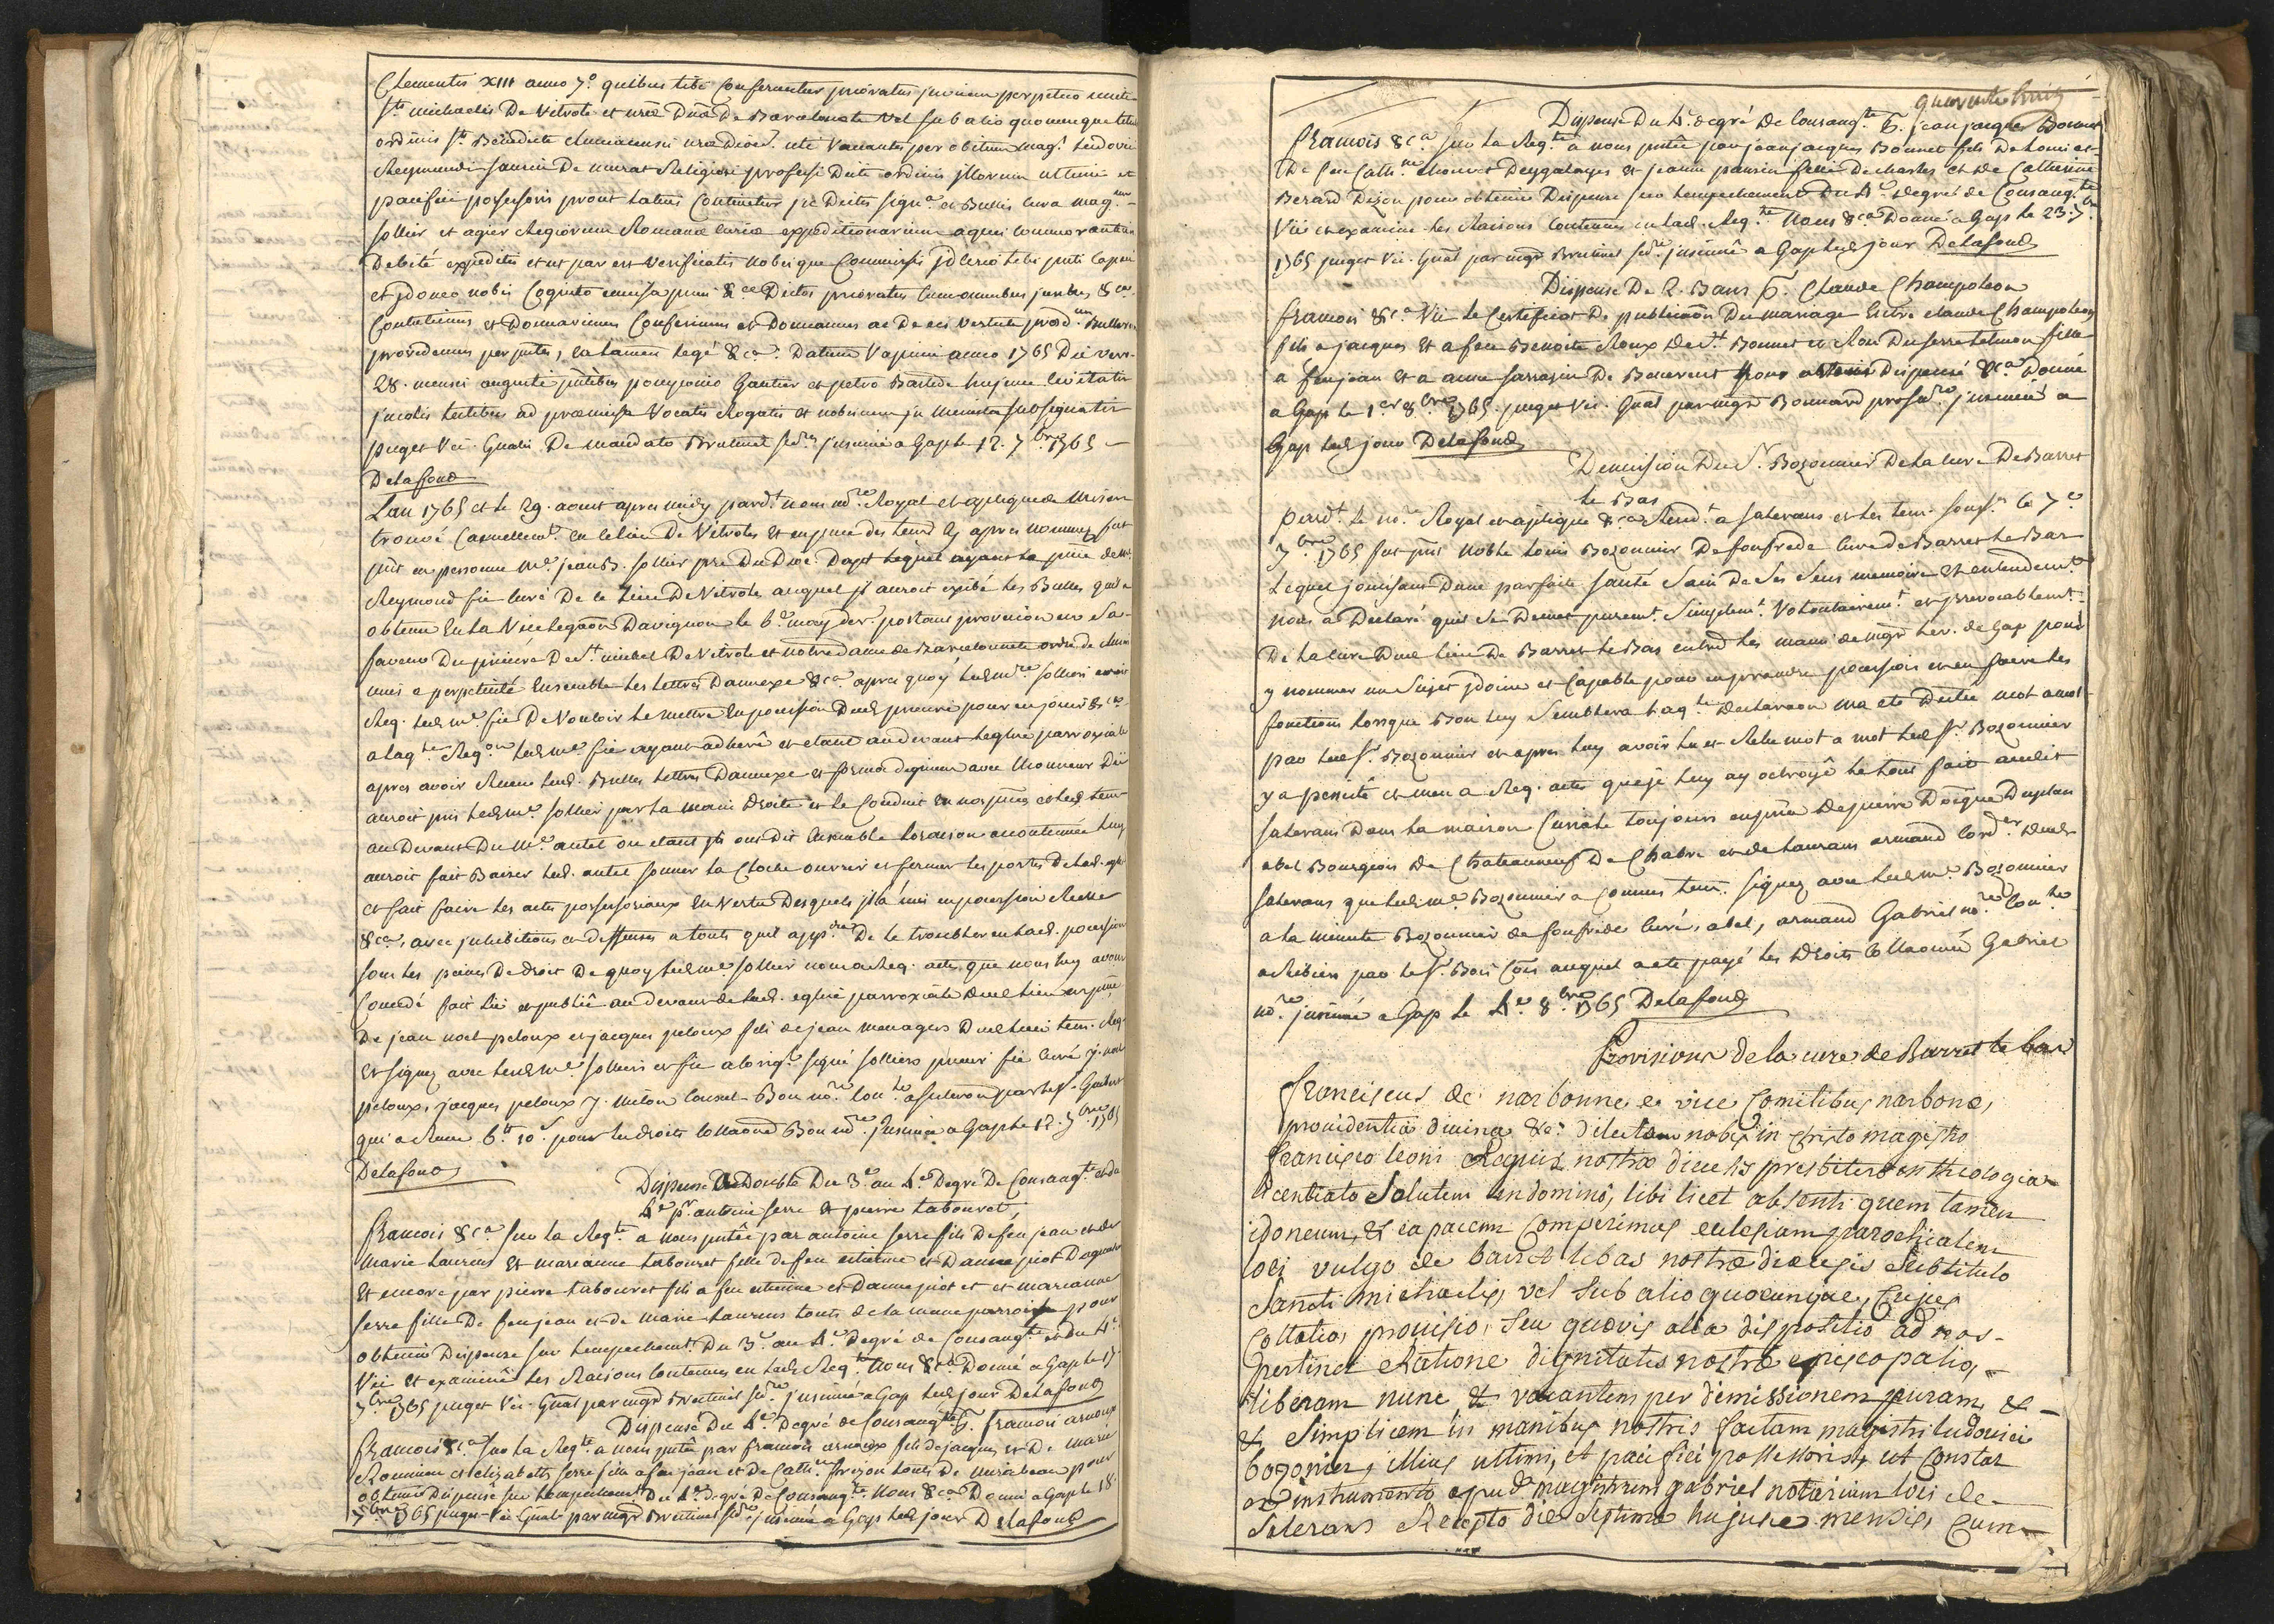 Clementis XIII anno 7.º quibus tibi Conferuntur prioratus invicem perpetuo uniti
sti michaelis De Vitrole et nræ Dnæ De Barcelonete Vel sub alio quocunque titul
ordinis sti Benedicti cluniacensis nræ Dioec. uti Vacantes per obitum mag.ri Ludovici
Reymundi saurin De murat Religiosi professi Dicti ordinis illorum ultimi et
pacifici possessoris prout latius Continetur in Dictis sign.ª et Bullis cura mag.rum
sollier et agier Regiorum Romanæ curiæ expeditionarium aquis commorantium
Debité expeditis et ut par est Verificatis nobisque Commissis idcirco tibi pnti Capaci
et idoneo nobis Cognito emissa prius &ca Dictos prioratus Cum omnibus juribus &ca
Contulimus et Donavimus Conferimus et Donamus ac De eis virtute præd.um Bullarum
providemus per pntes, ea tamen lege &ca. Datum Vapinci anno 1765 Die vero
28. mensis augusti pntibus pompronio Gautier et petro Bartide hujus Civitatis
incolis testibus ad præmissa Vocatis Rogatis et nobiscum in minuta subsignatis
puget Vic. Gnalis De mandato Brutinel sec.re insinué a Gap le 12. 7.bre 1765 –
Delafond
Lan 1765 et le 29. aoust apres midy pard.t nous no.re Royal et aplique de Mison
trouvé Casuellem.t en le lieu De Vitroles et en pnce des temoins cy apres nommes fut
pnt en personne M.e jean B. sollier pre Du Dioc. Dapt lequel ayant la pnce de M.
Reymond fie curé De ce lieu De Vitrole auquel il auroit exibé les Bulles quil a
obtenu En la Vice legaõn Davignon le 6.e may der. portant provision en sa
faveur Du prieuré De St michel De Vitrole et notre dame de Barcelonnete ordre de cluni
unis a perpetuité Ensemble les lettres Dannexe &ca apres quoy led. M.re sollier auroit
Req. led. M.e fie De Vouloir le mettre En possession Dud. prieuré pour en jouir &ca
a laq.le Req.on led. M.e fie ayant adheré et etant au devant leglise parroissiale
apres avoir Receu lesd. Bulles lettres Dannexe et forma dignum avec lhonneur Du
auroit pris led. M.e sollier par la main Droite et le Conduit En nos pnces et desd. tem.
au Devant Du M.e autel ou etant ils ont Dit Ensemble loraison accoutumée luy
auroit fait Baiser led. autel sonner la Cloche ouvrir et fermer les portes de lad. egl.
et fait faire les actes possessoriaux En Vertu Desquels il la mis en possession Reelle
&ca, avec inhibitions et deffenses a touts quil app.dra De le troubler en lad. possession
sous les peines De droit De quoy led. M.e sollier nous a Req. acte que nous luy avons
Concedé fait lu et publié au devant de lad. eglise parroxiale dud. lieu en pnce
De jean noel peloux et jacques peloux fils de jean menagers Dud. lieu tem. Req.
et signez avec led. M.e solliers et fie a lorig.l signé solliers prieur fie curé J. noel
peloux, jacques peloux J. milon consul Bon no.re con.le a sisteron par le s. Gaubert
qui a Receu 6.lt 10.s pour les droits Collaoné Bon no.re Insinué a Gap le 12. 7.bre 1765
Delafond
Dispense De Double Du 3.e au 4.e Degré De Consang.té et du
4.e pr. antoine serre et pierre tabouret,
francois &ca sur la Req.te a nous pntée par antoine serre fils De feu jean et de
Marie Laurens et marianne tabouret fille de feu etienne et Danne piot Daguielle
Et encore par pierre tabouret fils a feu etienne et Danne piot et et marianne
serre fille De feu jean et de Marie Laurens touts de la meme parroisse pour
obtenir Dispense sur lempechem.t Du 3.e au 4.e Degré de Consang.té et du 4.e
Veu et examiné les Raisons Contenues en lad. Req.te Nous &ca Donné a Gap le 17
7.bre 1765 puget Vic. Gnal par mgr Brutinel sec.re insinué a Gap led. jour Delafond
Dispense Du 4.e Degré de Consang.té pr. francois arnoux
francois &ca sur la Req.te a nous pntée par francois arnoux fils de jacques et De Marie
Roumieu et elizabeth serre fille a feu jean et De Cath.ne frizon touts De Mirabeau pour
obtenir Dispense sur lempechem.t Du 4.e degré De Consang.té. Nous &ca Donné a Gap le 18
7.bre 1765 puget Vic. Gnal par mgr Brutinel sec.re insinué a Gap led. jour Delafond
quarante huit
Dispense Du 4.e degré De Consang.té pr. jean jacques Bonnet
francois &ca sur la Req.te a nous pntée par jean jacques Bonnet fils De Louis et
De feu Cath.ne Deygalayes et jeanne fille De charles et De Catherine
Berard Dizon pour obtenir Dispense sur lempechement Du 4.e degré de Consang.té
Veu et examiné les Raisons Contenues en lad. Req.te Nous &ca Donné a Gap le 23. 7.bre
1765 puget Vic. Gnal par mgr Brutinel sec.re insinué a Gap led. jour Delafond
Dispense De 2. Bans pr. Claude Champoleon
francois &ca. Veu le Certificat De publicaõn Du mariage Entre claude Champoleon
fils a jacques et a feu Benoite Roux De St Bonnet et Rou Duserre telmon fille
a feu jean et a anne sarrazin De Benevent Nous avons Dispensé &ca Donné
a Gap le 1.er 8.bre 1765. puget Vic. Gnal par mgr Bonnard pro sec.re insinué a
Gap led. jour Delafond
Demission Du S.r Bozonnier De la cure De Barret
le Bas
Pard.t le no.re Royal et aplique &ca Resid.t a salerans et les tem. sous.nés le 7.e
7.bre 1765 fut pnt Noble Louis Bozonnier De fonfrede curé de Barret le Bas
Lequel jouissant Dune parfaite santé Sain De Ses Sens memoire et entendem.t
nous a Declaré quil Se Demet purem.t Simplem.t Volontairem.t et irrevocablem.t
De la cure Dud. lieu De Barret le Bas entre les mains de mgr lev. de Gap pour
y nommer un Sujet idoine et Capable pour en prendre possession et en faire les
fonctions lorsque Bon luy Semblera laq.le Declaraon ma eté Dictée mot a mot
par led. S.r Bozonnier et apres luy avoir leu et Releu mot a mot led. S.r Bozonnier
y a persisté et men a Req. acte que je luy ay octroyé le tout fait aud. lieu
salerans Dans la maison Curiale toujours en pnce De pierre Doĩque Duplan
abel Bourgeois De Chateauneuf De Chabre et de Laurans armand Cord.er dud.
salerans que led. M.e Bozonnier a Connus tem. signez avec led. M.e Bozonnier
a la minute Bozonnier de fonfrede curé, abel, armand Gabriel no.re Con.le
a Ribiers par le S.r Bois Cõis auquel a eté payé les Droits Collaonné Gabriel
no.re insinué a Gap le 4.e 8.bre 1765 Delafond
Provisions de la cure de Barret le bas
franciscus de narbonne ex vice Comitibus narbonæ,
providentia divina &ca dilecto nobis in christo magistro
francisco leoni nostræ diecesis presbitero in theologia
licentiato Salutem in domino, tibi licet absenti quem tamen
idoneum, & capacem Comperimus eclesiam parochialem
loci vulgo de barret lebas nostræ diecesis Subtitulo
Sancti michaelis, vel Sub alio quocunque, Cujus
Collatio, provisio, Seu quævis alia dispositio ad nos –
pertinet Ratione dignitatis nostræ episcopalis, –
liberam nunc & vacantem per dimissionem puram, & –
& Simplicem in manibus nostris factam magistri ludovici
bozonier, illius ultimi, et pacifici possessoris, ut Constat
ex instrumento apud magistrum gabriel notarium loci de –
Salerans Recepto die Septima hujusce mensis, Cum –